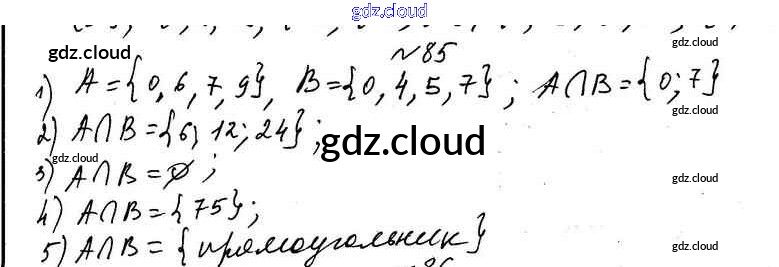 gdz.cloud
№85
gdz.cloud
gdz.cloud
1) A={0,6,7,9}, B={0,4,5,7}; A∩B={0;7}
gdz.cloud
2) A∩B={6; 12; 24};
gdz.cloud
gdz.cloud
3) A∩B=∅;
gdz.cloud
4) A∩B={75};
5) A∩B={прямоугольник}
gdz.cloud